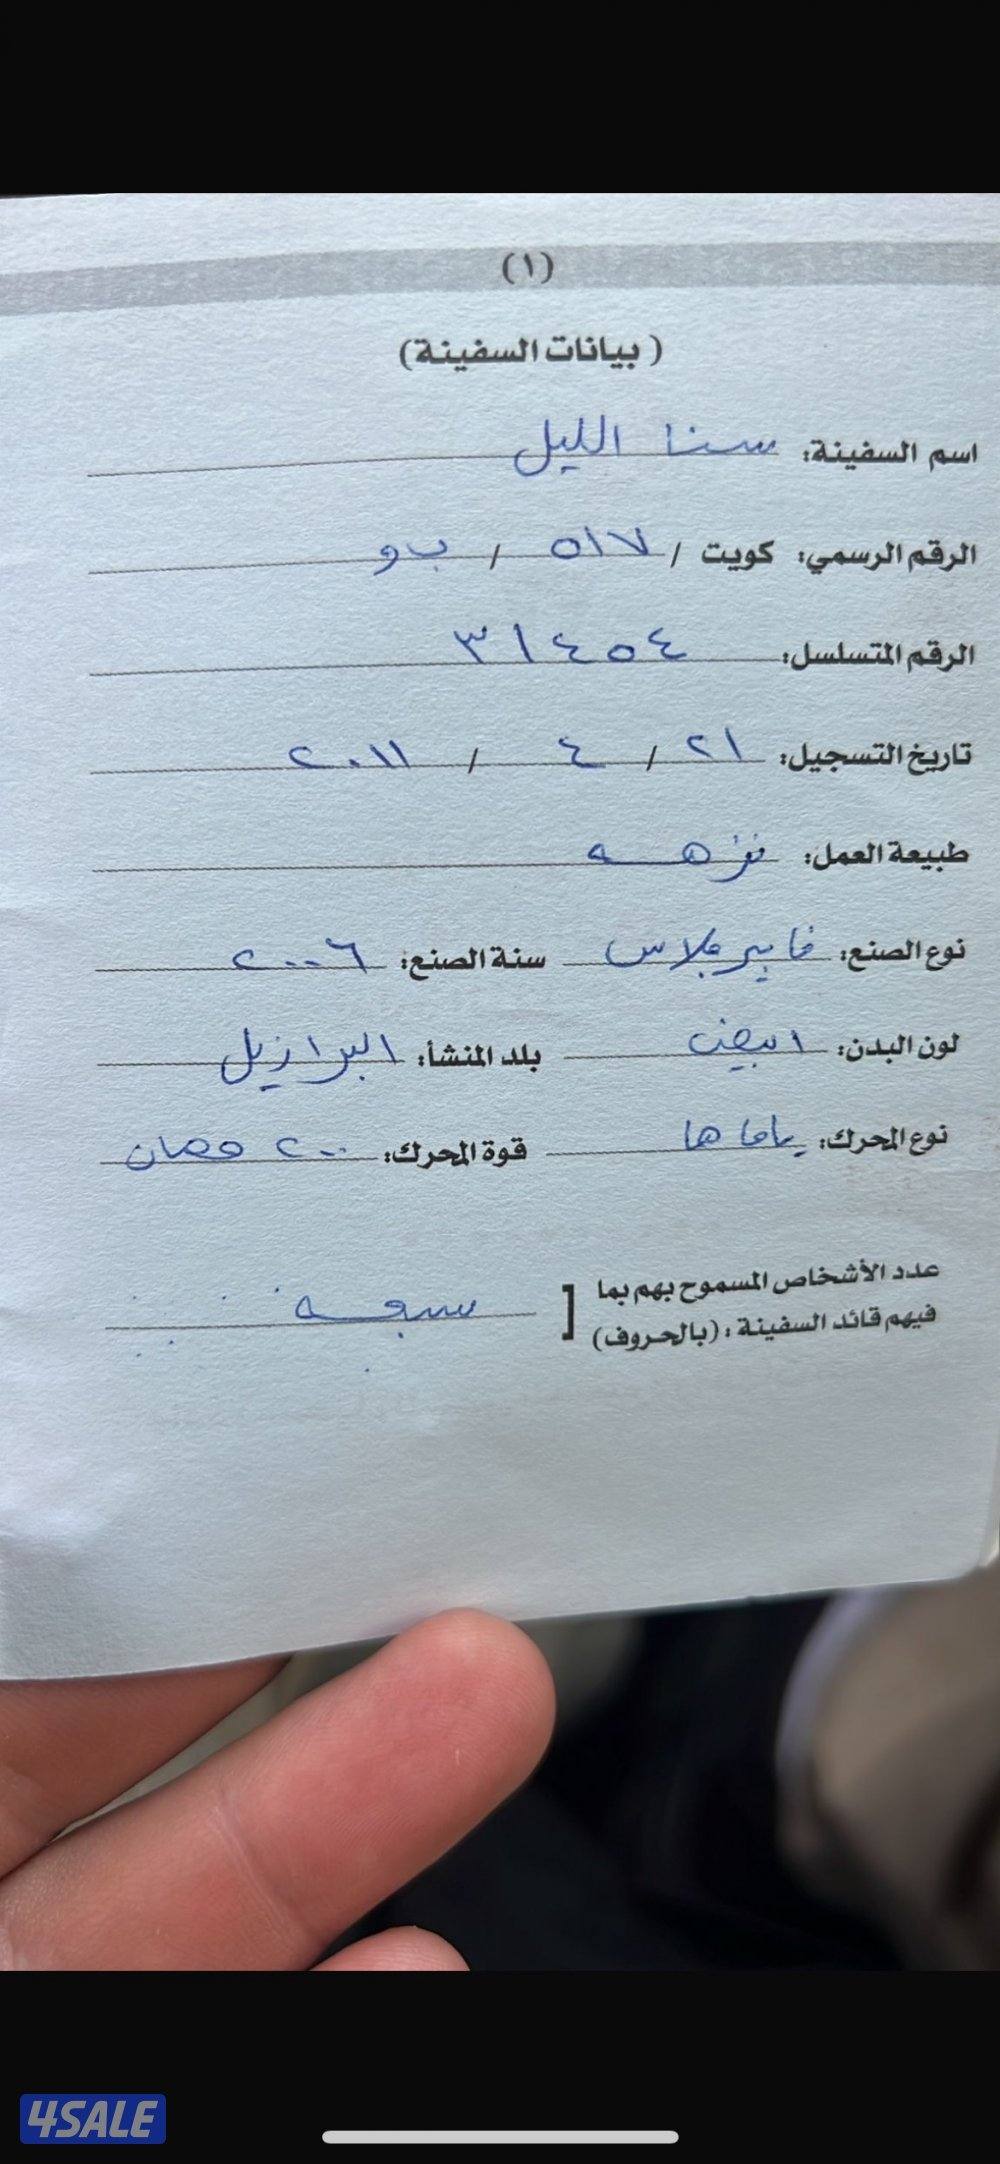 (١)
(بيانات السفينة)
اسم السفينة: سنا الليل
الرقم الرسمي: كويت / ٥١٧ / ب و
الرقم المتسلسل: ٣١٤٥٤
تاريخ التسجيل: ٢١ / ٤ / ٢٠١١
طبيعة العمل: نزهه
نوع الصنع: فايبر جلاس سنة الصنع: ٢٠٠٦
لون البدن: ابيض بلد المنشأ: البرازيل
نوع المحرك: ياماها قوة المحرك: ٢٠٠ حصان
عدد الأشخاص المسموح بهم بما
فيهم قائد السفينة: (بالحروف) [ سبعة
4SALE